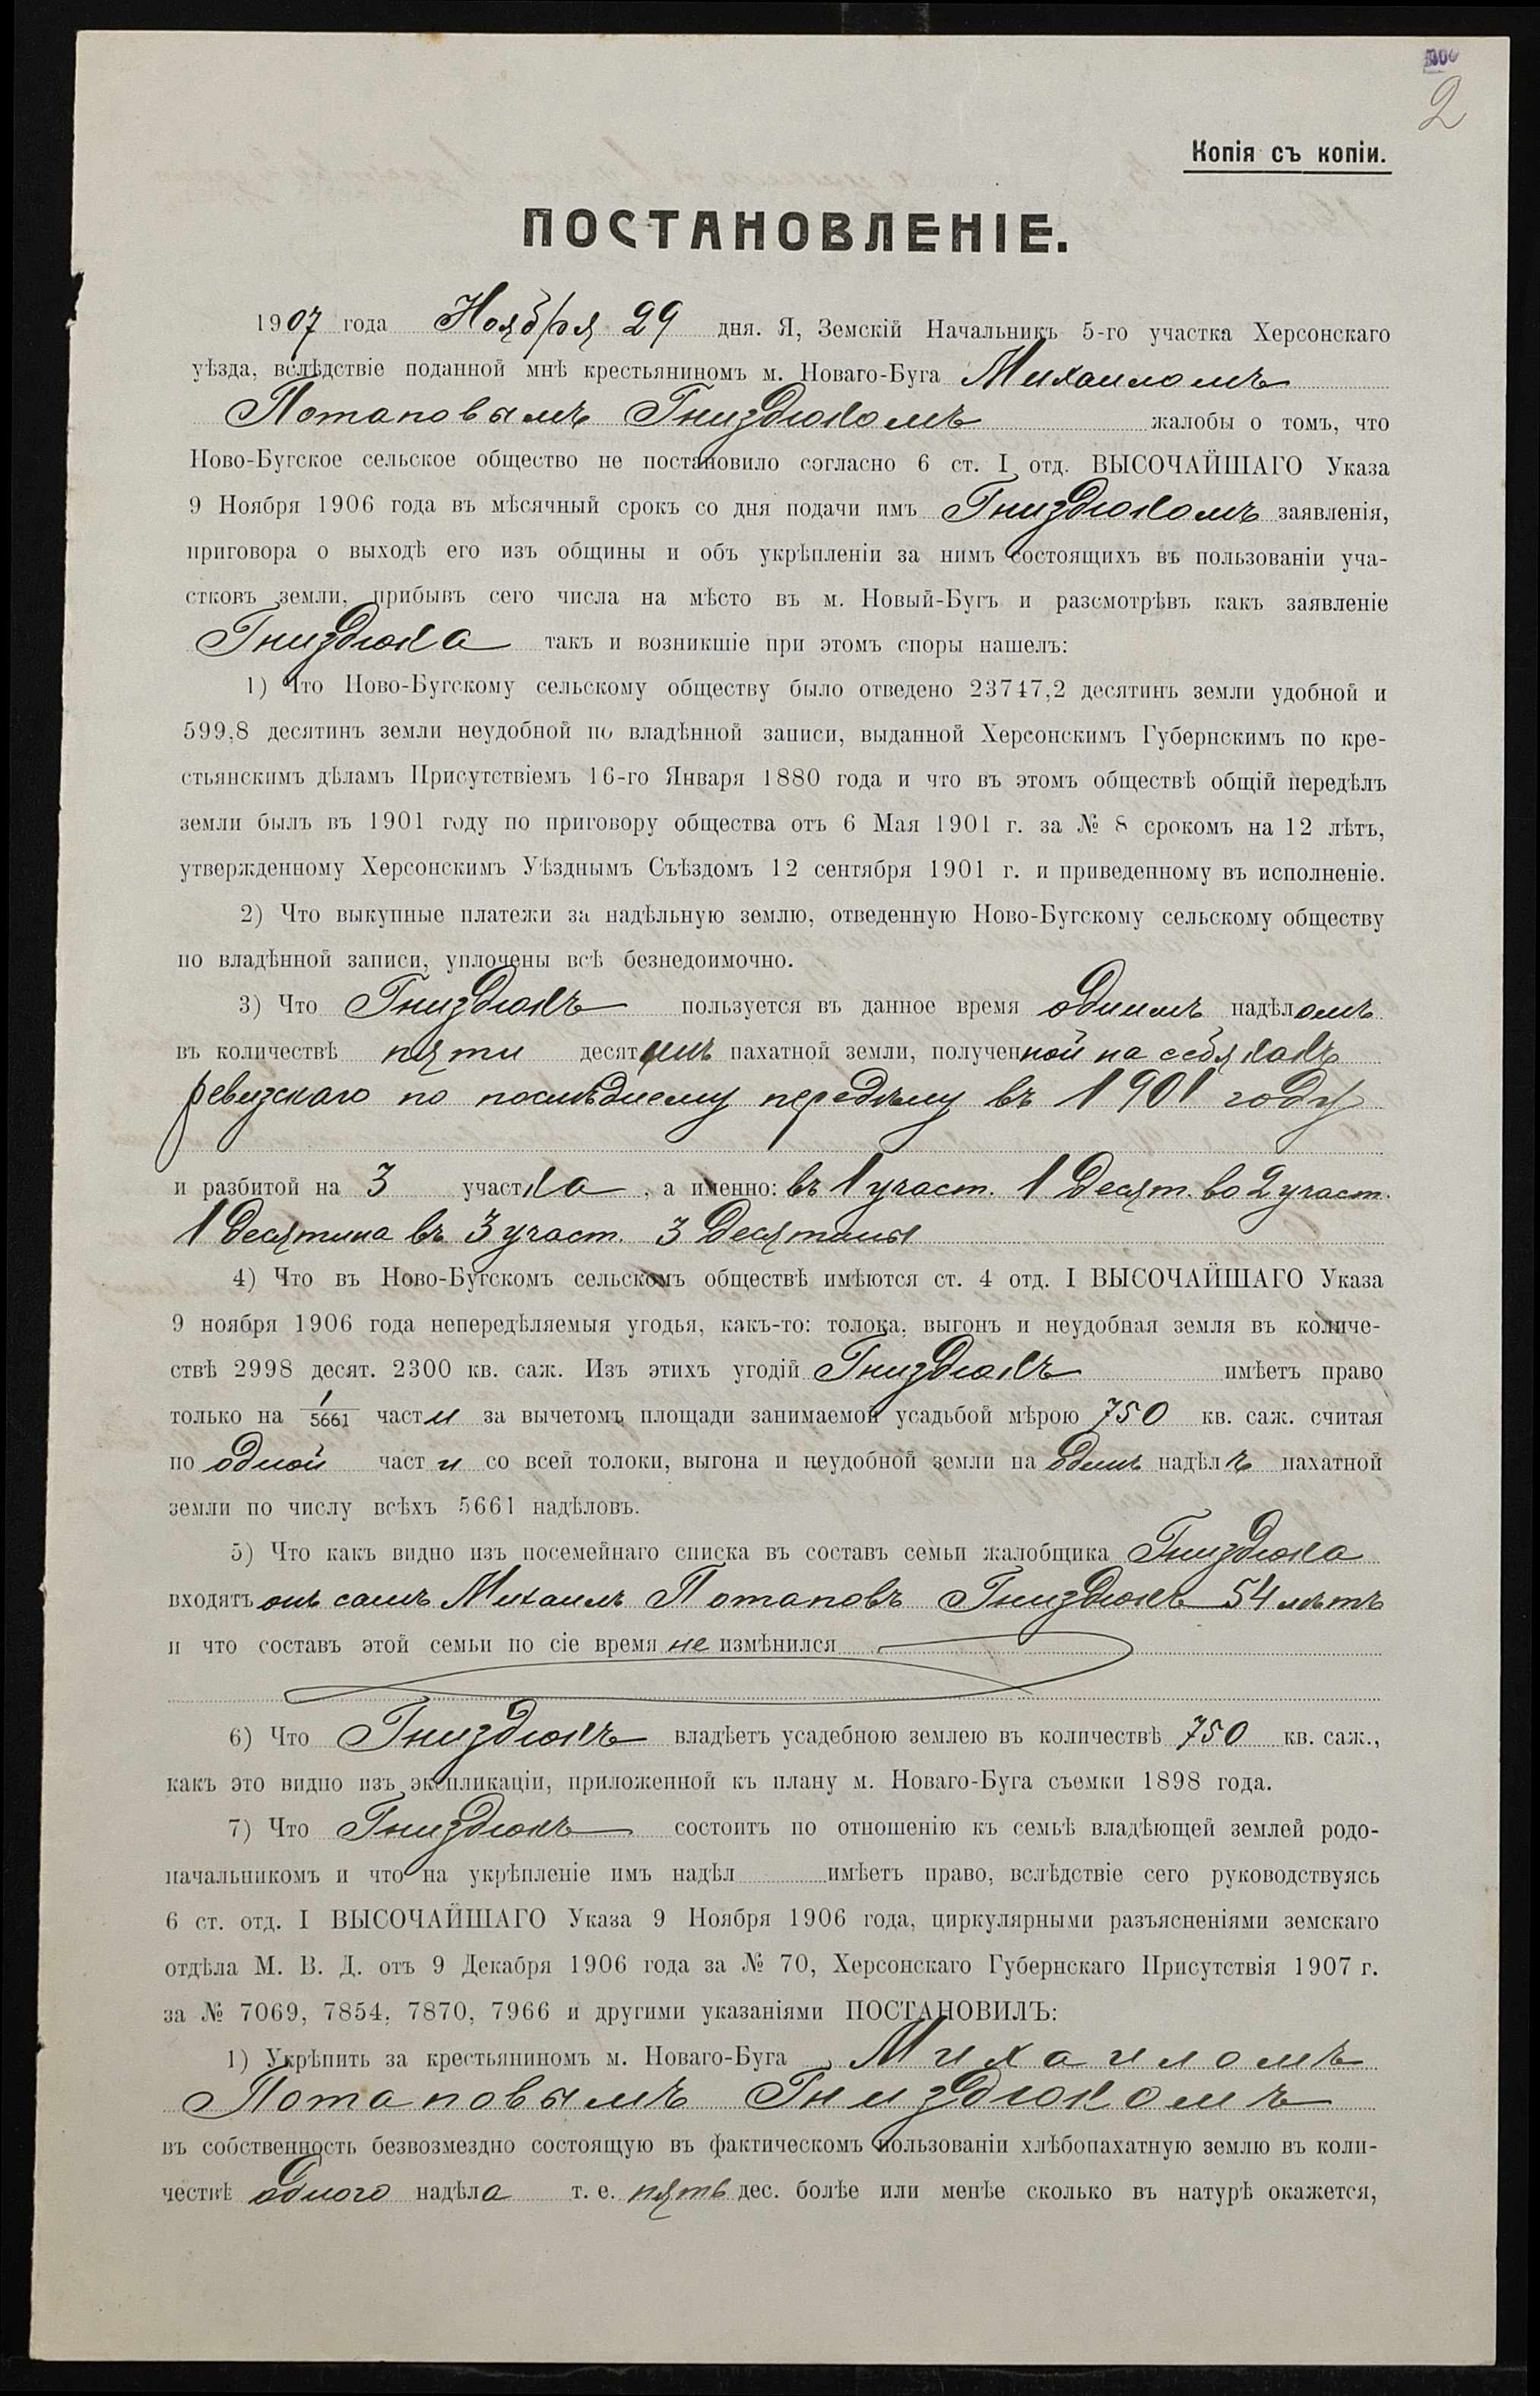 2
Копія съ копіи.
ПОСТАНОВЛЕНІЕ.
1907 года Ноября 29 дня. Я, Земскій Начальникъ 5-го участка Херсонскаго
уѣзда, вслѣдствіе поданной мнѣ крестьяниномъ м. Новаго-Буга Михаиломъ
Потаповымъ Гниздюкомъ жалобы о томъ, что
Ново-Бугское сельское общество не постановило согласно 6 ст. I отд. ВЫСОЧАЙШАГО Указа
9 Ноября 1906 года въ мѣсячный срокъ со дня подачи имъ Гниздюкомъ заявленія,
приговора о выходѣ его изъ общины и объ укрѣпленіи за нимъ состоящихъ въ пользованіи уча-
стковъ земли, прибывъ сего числа на мѣсто въ м. Новый-Бугъ и разсмотрѣвъ какъ заявленіе
Гниздюка такъ и возникшіе при этомъ споры нашелъ:
1) Что Ново-Бугскому сельскому обществу было отведено 23747,2 десятинъ земли удобной и
599,8 десятинъ земли неудобной по владѣнной записи, выданной Херсонскимъ Губернскимъ по кре-
стьянскимъ дѣламъ Присутствіемъ 16-го Января 1880 года и что въ этомъ обществѣ общій передѣлъ
земли былъ въ 1901 году по приговору общества отъ 6 Мая 1901 г. за № 8 срокомъ на 12 лѣтъ,
утвержденному Херсонскимъ Уѣзднымъ Съѣздомъ 12 сентября 1901 г. и приведенному въ исполненіе.
2) Что выкупные платежи за надѣльную землю, отведенную Ново-Бугскому сельскому обществу
по владѣнной записи, уплочены всѣ безнедоимочно.
3) Что Гниздюкъ пользуется въ данное время однимъ надѣломъ
въ количествѣ пяти десятинъ пахатной земли, полученной на себя какъ
ревизскаго по послѣднему передѣлу въ 1901 году
и разбитой на 3 участка, а именно: въ 1 участ. 1 десят. во 2 участ.
1 десятина въ 3 участ. 3 десятины
4) Что въ Ново-Бугскомъ сельскомъ обществѣ имѣются ст. 4 отд. I ВЫСОЧАЙШАГО Указа
9 ноября 1906 года непередѣляемыя угодья, какъ-то: толока, выгонъ и неудобная земля въ количе-
ствѣ 2998 десят. 2300 кв. саж. Изъ этихъ угодій Гниздюкъ имѣетъ право
только на 1/5661 части за вычетомъ площади занимаемой усадьбой мѣрою 750 кв. саж. считая
по одной части со всей толоки, выгона и неудобной земли на одинъ надѣлъ пахатной
земли по числу всѣхъ 5661 надѣловъ.
5) Что какъ видно изъ посемейнаго списка въ составъ семьи жалобщика Гниздюка
входятъ онъ самъ Михаилъ Потаповъ Гниздюкъ 54 лѣтъ
и что составъ этой семьи по сіе время не измѣнился
6) Что Гниздюкъ владѣетъ усадебною землею въ количествѣ 750 кв. саж.,
какъ это видно изъ экспликаціи, приложенной къ плану м. Новаго-Буга съемки 1898 года.
7) Что Гниздюкъ состоитъ по отношенію къ семьѣ владѣющей землей родо-
начальникомъ и что на укрѣпленіе имъ надѣл имѣетъ право, вслѣдствіе сего руководствуясь
6 ст. отд. I ВЫСОЧАЙШАГО Указа 9 Ноября 1906 года, циркулярными разъясненіями земскаго
отдѣла М. В. Д. отъ 9 Декабря 1906 года за № 70, Херсонскаго Губернскаго Присутствія 1907 г.
за № 7069, 7854, 7870, 7966 и другими указаніями ПОСТАНОВИЛЪ:
1) Укрѣпить за крестьяниномъ м. Новаго-Буга Михаиломъ
Потаповымъ Гниздюкомъ
въ собственность безвозмездно состоящую въ фактическомъ пользованіи хлѣбопахатную землю въ коли-
чествѣ одного надѣла т. е. пять дес. болѣе или менѣе сколько въ натурѣ окажется,